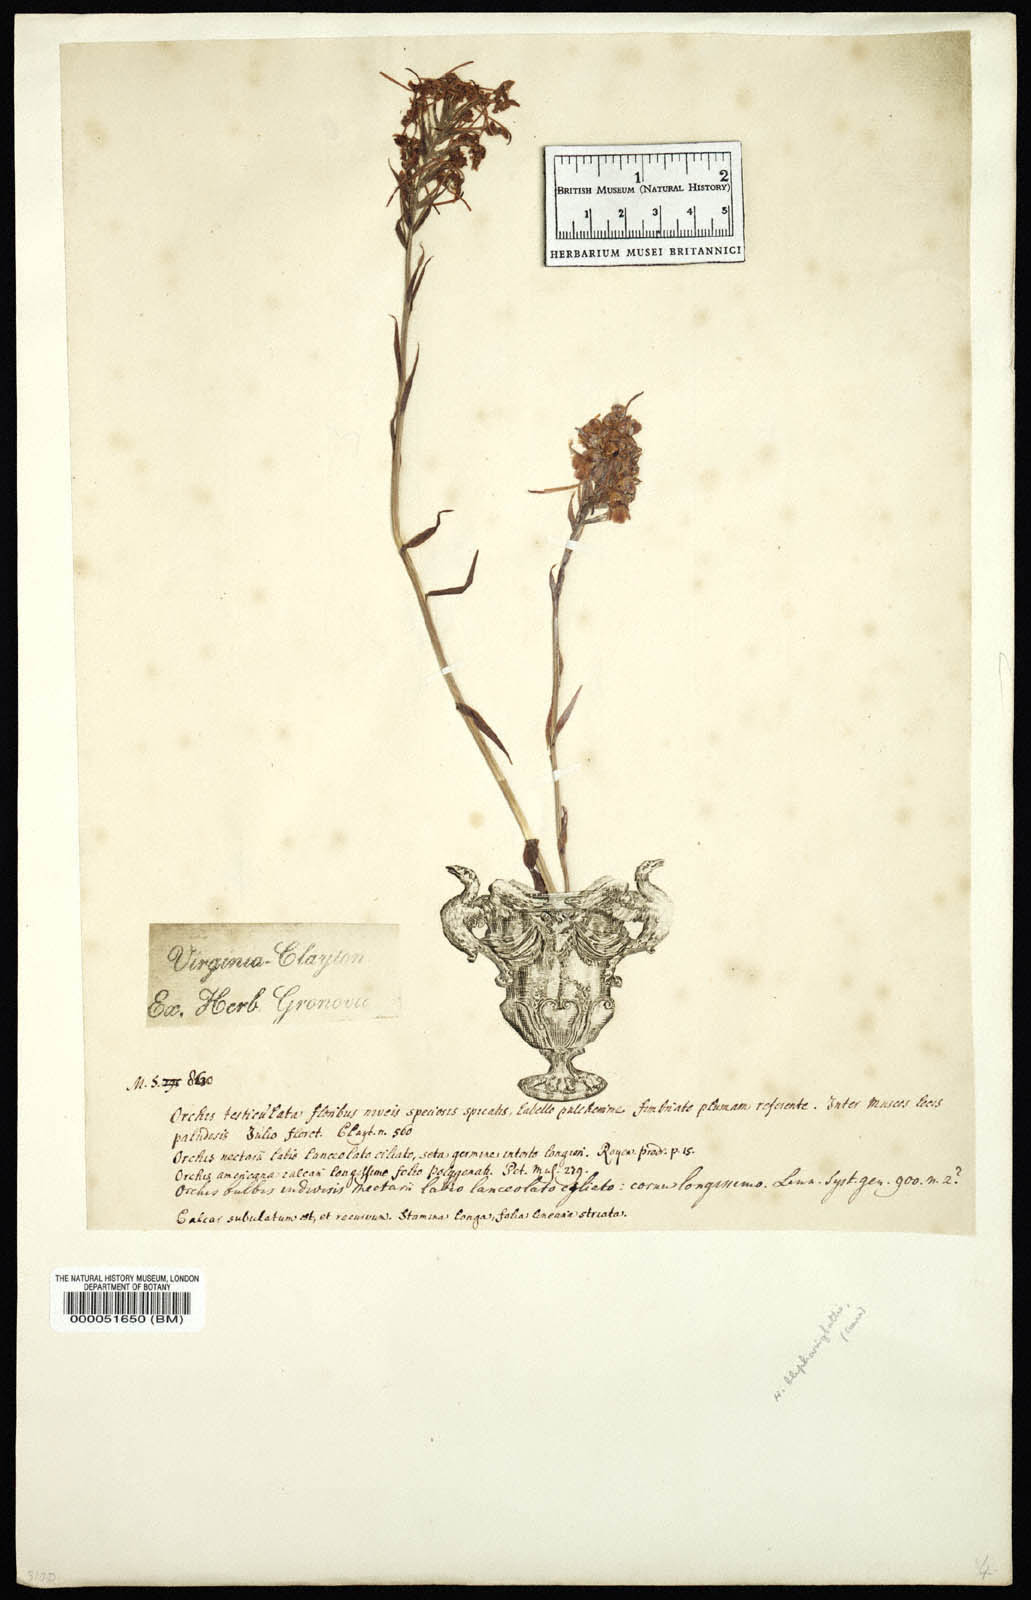 1 2
BRITISH MUSEUM (NATURAL HISTORY)
1 2 3 4 5
HERBARIUM MUSEI BRITANNICI
Virginia-Clayton
Ex. Herb Gronovii
M. S.
Orchis testiculata floribus niveis speciosis spicatis, labello pulcherrime fimbriato plumam referente. Inter Muscos locis
paludosis Julio floret. Clayt. n. 560
Orchis nectarii labio lanceolato ciliato, seta germine intorto longiori. Royen prodr. p. 15.
Orchis americana calcari longissimo folio polygonati. Pet. Mus. 279.
Orchis bulbis indivisis nectarii labio lanceolato ciliato: cornu longissimo. Linn. Syst. gen. 900. n. 2?
Calcar subulatum est, et recurvum. Stamina longa, folia linearia striata.
THE NATURAL HISTORY MUSEUM, LONDON
DEPARTMENT OF BOTANY
000051650 (BM)
H. blephariglottis,